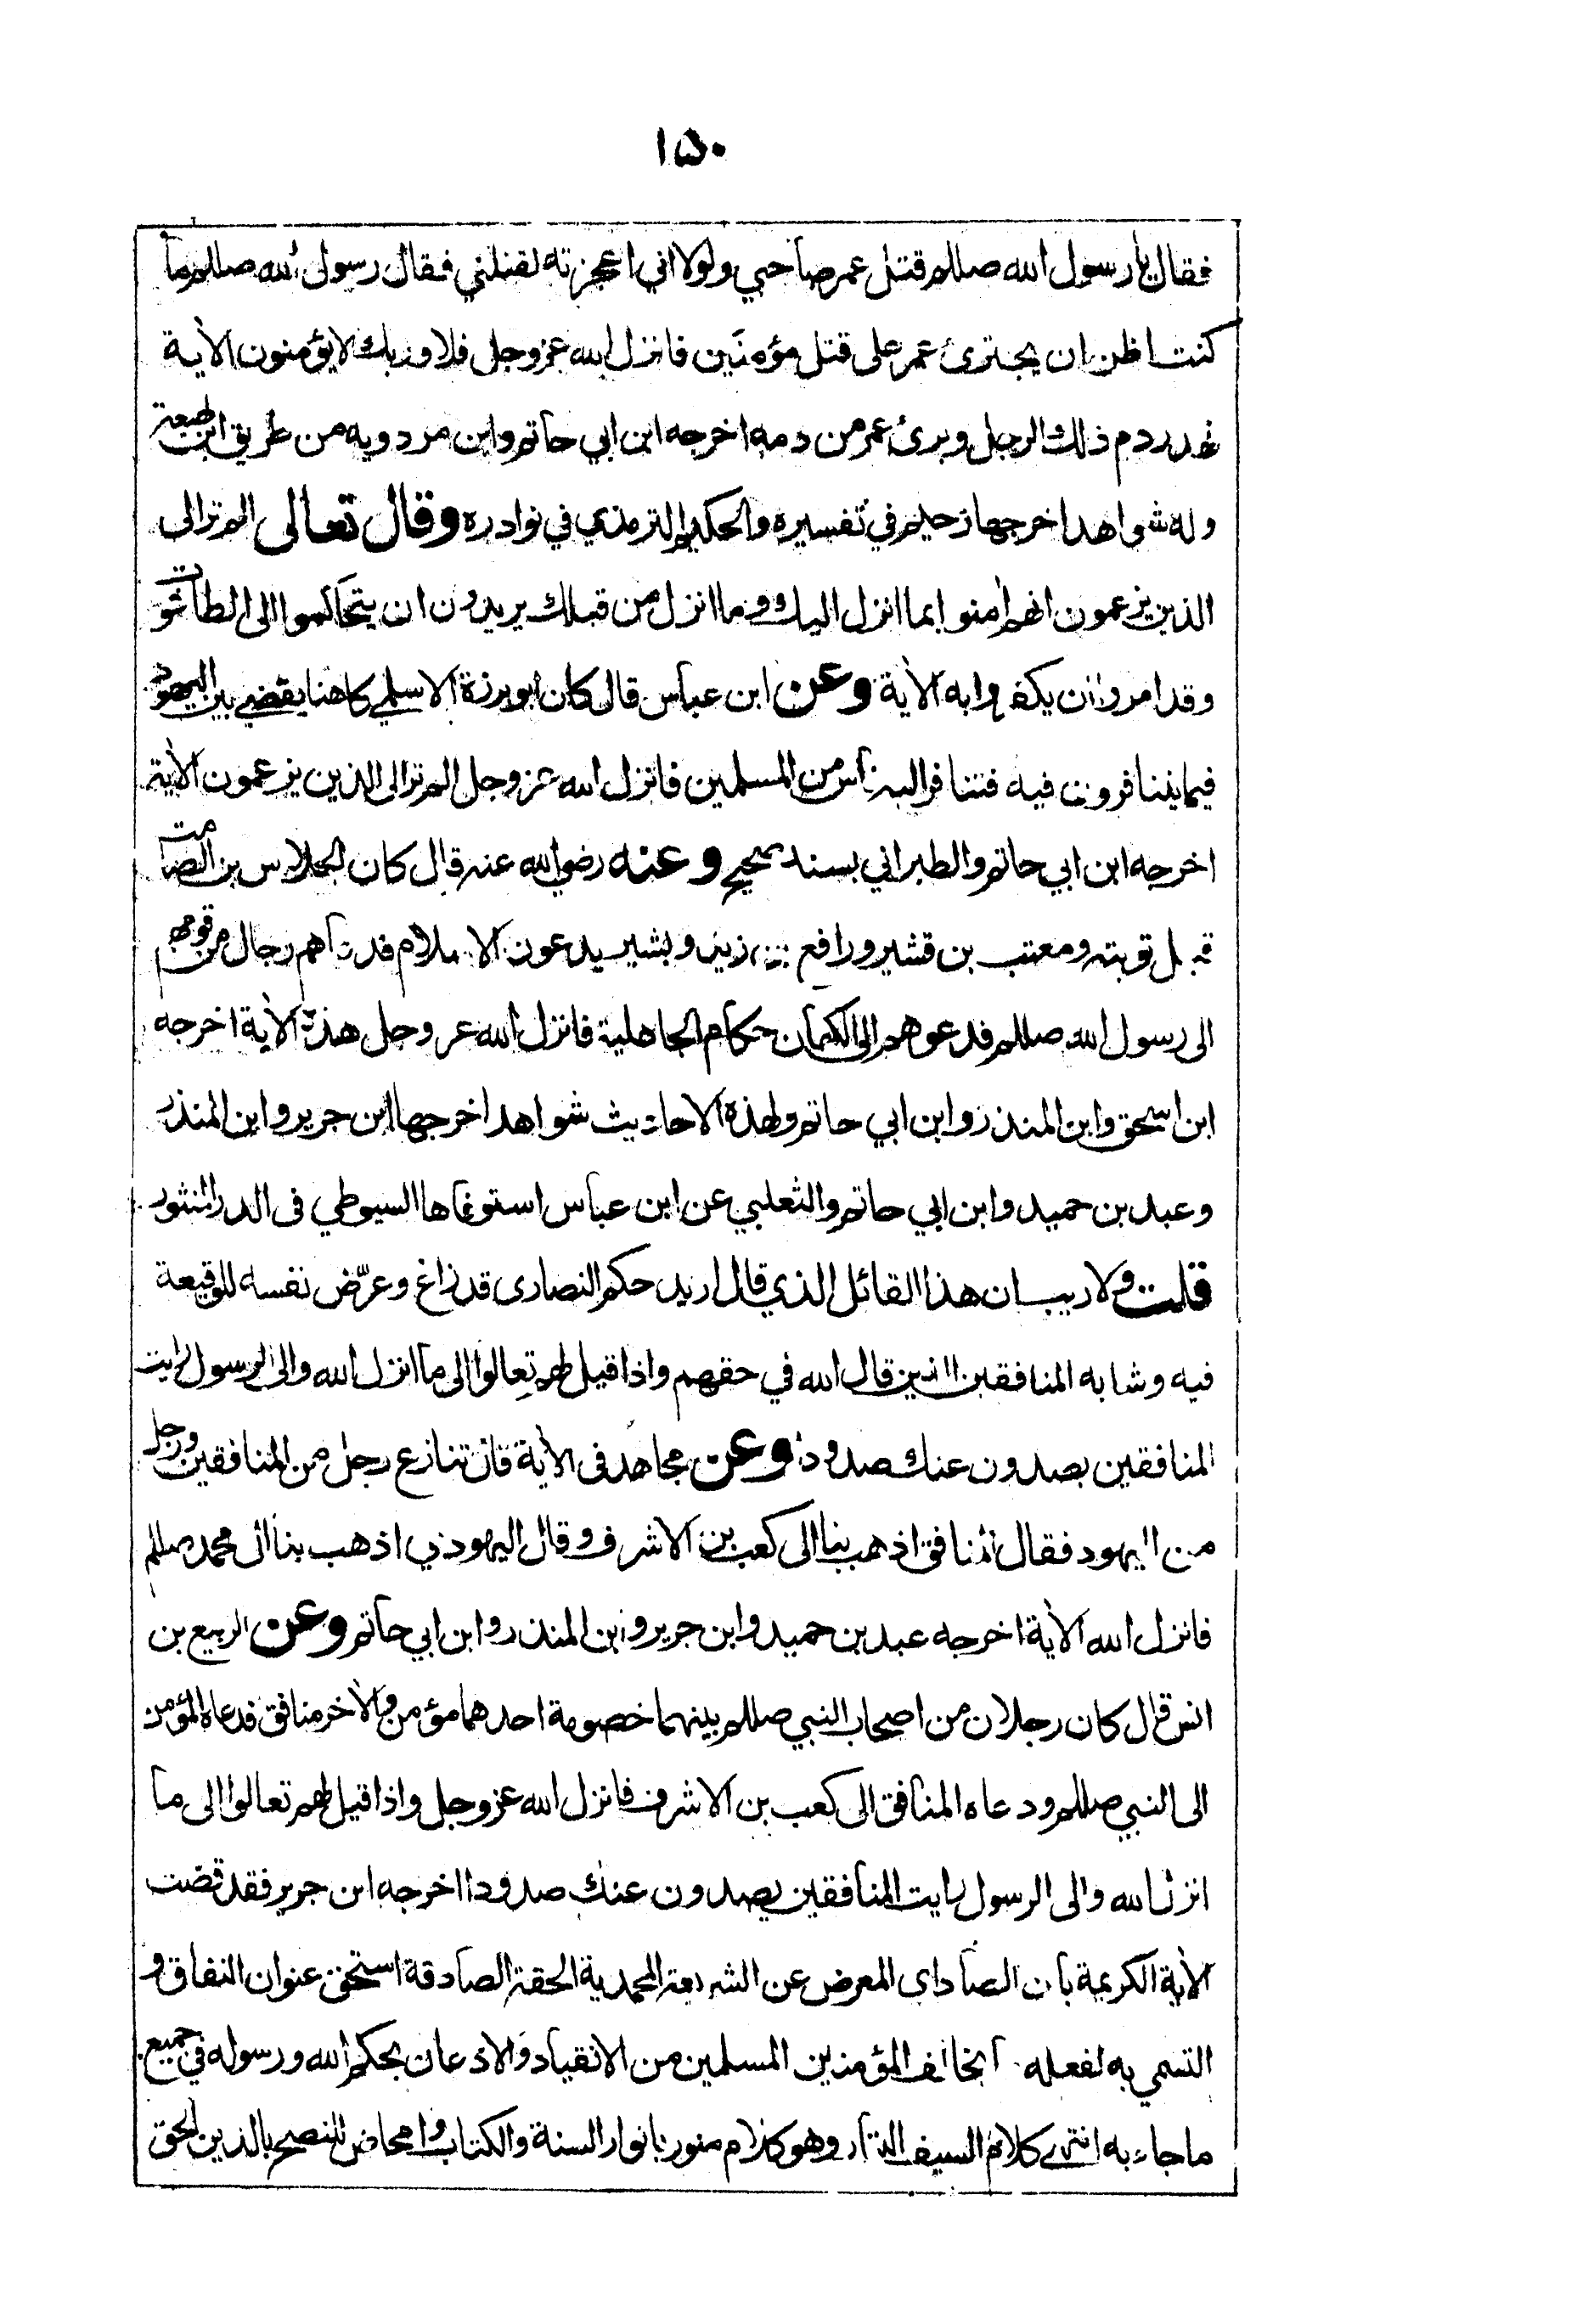 ۱۵۰
فقال يا رسول الله صللم قتل عمر صاحبي ولولا اني اعجزته لقتلني فقال رسول الله صللم ما
كنت اظن ان يجترئ عمر على قتل مؤمنَين فانزل الله عز وجل فلا وربك لا يؤمنون الأية
فهدر دم ذلك الرجل وبرئ عمر من دمه اخرجه ابن ابي حاتم وابن مردويه من طريق ابن لهيعة
وله شواهد اخرجها دحيم في تفسيره والحكيم الترمذي في نوادره وقال تعالى الم تر الى
الذين يزعمون انهم امنوا بما انزل اليك وما انزل من قبلك يريدون ان يتحاكموا الى الطاغوت
وقد امروا ان يكفروا به الأية وعن ابن عباس قال كان ابو برزة الاسلمي كاهنا يقضي بين اليهود
فيما يتنافرون فيه فتنافر اليه ناس من المسلمين فانزل الله عز وجل الم تر الى الذين يزعمون الأية
اخرجه ابن ابي حاتم والطبراني بسند صحيح وعنه رضي الله عنه قال كان الجلاس بن الصامت
قبل توبته ومعتب بن قشير ورافع بن زيد وبشير يدعون الاسلام فدعاهم رجال من قومهم
الى رسول الله صللم فدعوهم الى الكهان حكام الجاهلية فانزل الله عز وجل هذه الأية اخرجه
ابن اسحق وابن المنذر وابن ابي حاتم ولهذه الاحاديث شواهد اخرجها ابن جرير وابن المنذر
وعبد بن حميد وابن ابي حاتم والثعلبي عن ابن عباس استوفاها السيوطي فى الدر المنثور
قلت ولا ريب ان هذا القائل الذي قال اريد حكم النصارى قد زاغ وعرّض نفسه للوقيعة
فيه وشابه المنافقين الذين قال الله في حقهم واذا قيل لهم تعالوا الى ما انزل الله والى الرسول رايت
المنافقين يصدون عنك صدودا وعن مجاهد فى الأية قال تنازع رجل من المنافقين ورجل
من اليهود فقال المنافق اذهب بنا الى كعب بن الاشرف وقال اليهودي اذهب بنا الى محمد صللم
فانزل الله الأية اخرجه عبد بن حميد وابن جرير وابن المنذر وابن ابي حاتم وعن الربيع بن
انس قال كان رجلان من اصحاب النبي صللم بينهما خصومة احدهما مؤمن والأخر منافق فدعاه المؤمن
الى النبي صللم ودعاه المنافق الى كعب بن الاشرف فانزل الله عز وجل واذا قيل لهم تعالوا الى ما
انزل الله والى الرسول رايت المنافقين يصدون عنك صدودا اخرجه ابن جرير فقد قضت
الأية الكريمة بان الصاد اي المعرض عن الشريعة المحمدية الحقة الصادقة استحق عنوان النفاق و
التسمي به لفعله المخالف المؤمنين المسلمين من الانقياد والاذعان بحكم الله ورسوله في جميع
ما جاء به انتهى كلام السيف البتار وهو كلام منور بانوار السنة والكتاب وامحاض للنصح بالدين الحق